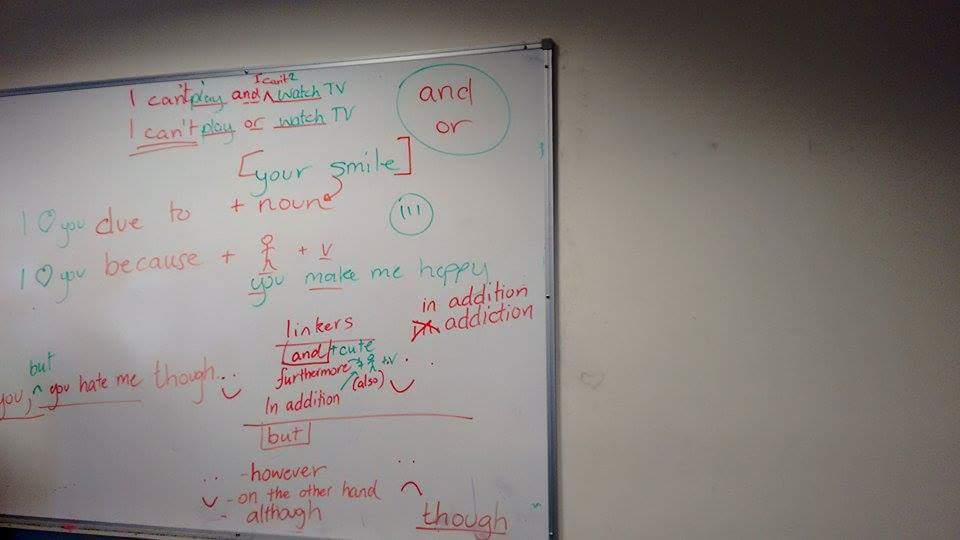 I can't?
I can't play and ^ watch TV
I can't play or watch TV
and
or
[your smile]
I ♡ you due to + noun
I ♡ you because + + v
you make me happy
in addition
addiction
linkers
and + cute
furthermore + + v
(also)
In addition
but
you, ^ you hate me though..
but
- however
- on the other hand
- although
though